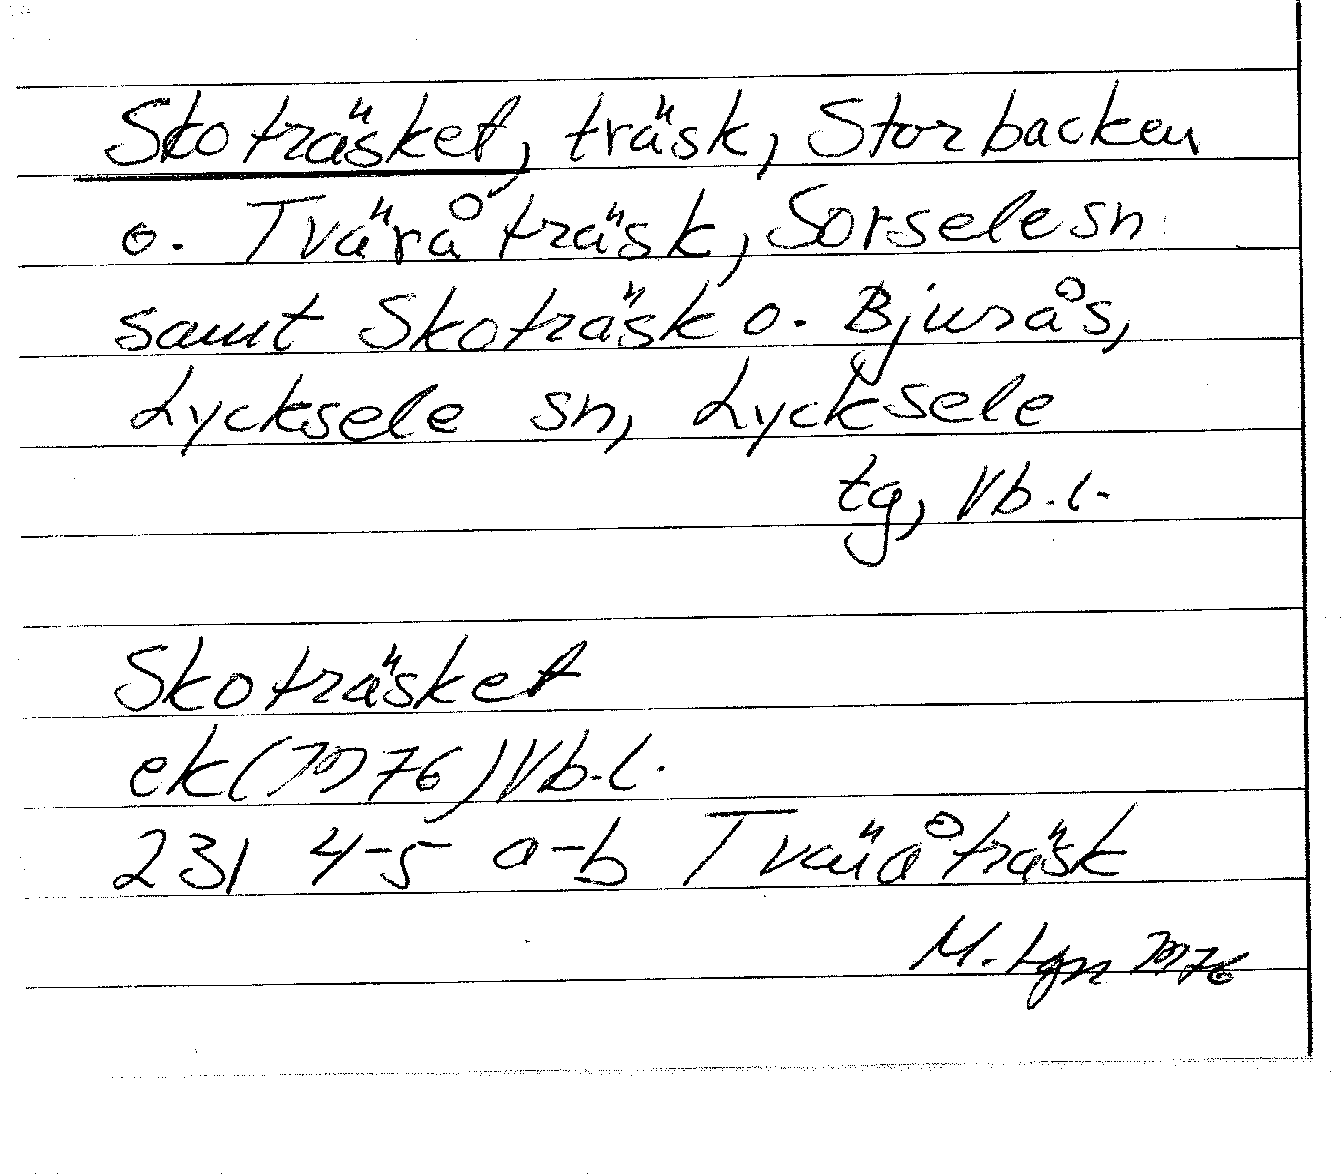 Skoträsket, träsk, Storbacken
o. Tväråträsk, Sorsele sn
samt Skoträsk o. Bjurås,
Lycksele sn, Lycksele
tg, Vb.l.
Skoträsket
ek (1976) Vb.l.
231 4-5 a-b Tväråträsk
M. 1976